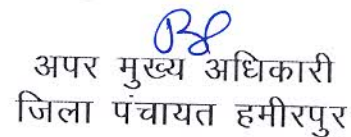 अपर मुख्य अधिकारी
जिला पंचायत हमीरपुर